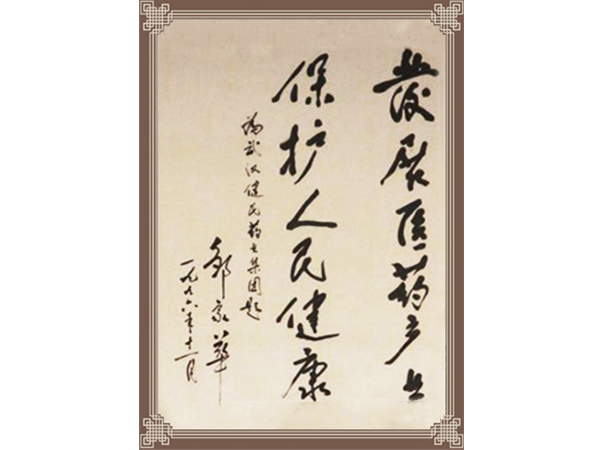 發展医药产业
保护人民健康
為武汉健民药业集团题
邹家華
一九九六年十一月